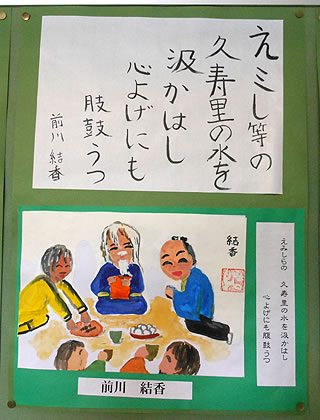 えミし等の
久寿里の水を
汲かはし
心よげにも
肢鼓うつ
前川 結香
結香
えみしらの 久寿里の水を汲かはし
心よげにも腹鼓うつ
前川 結香